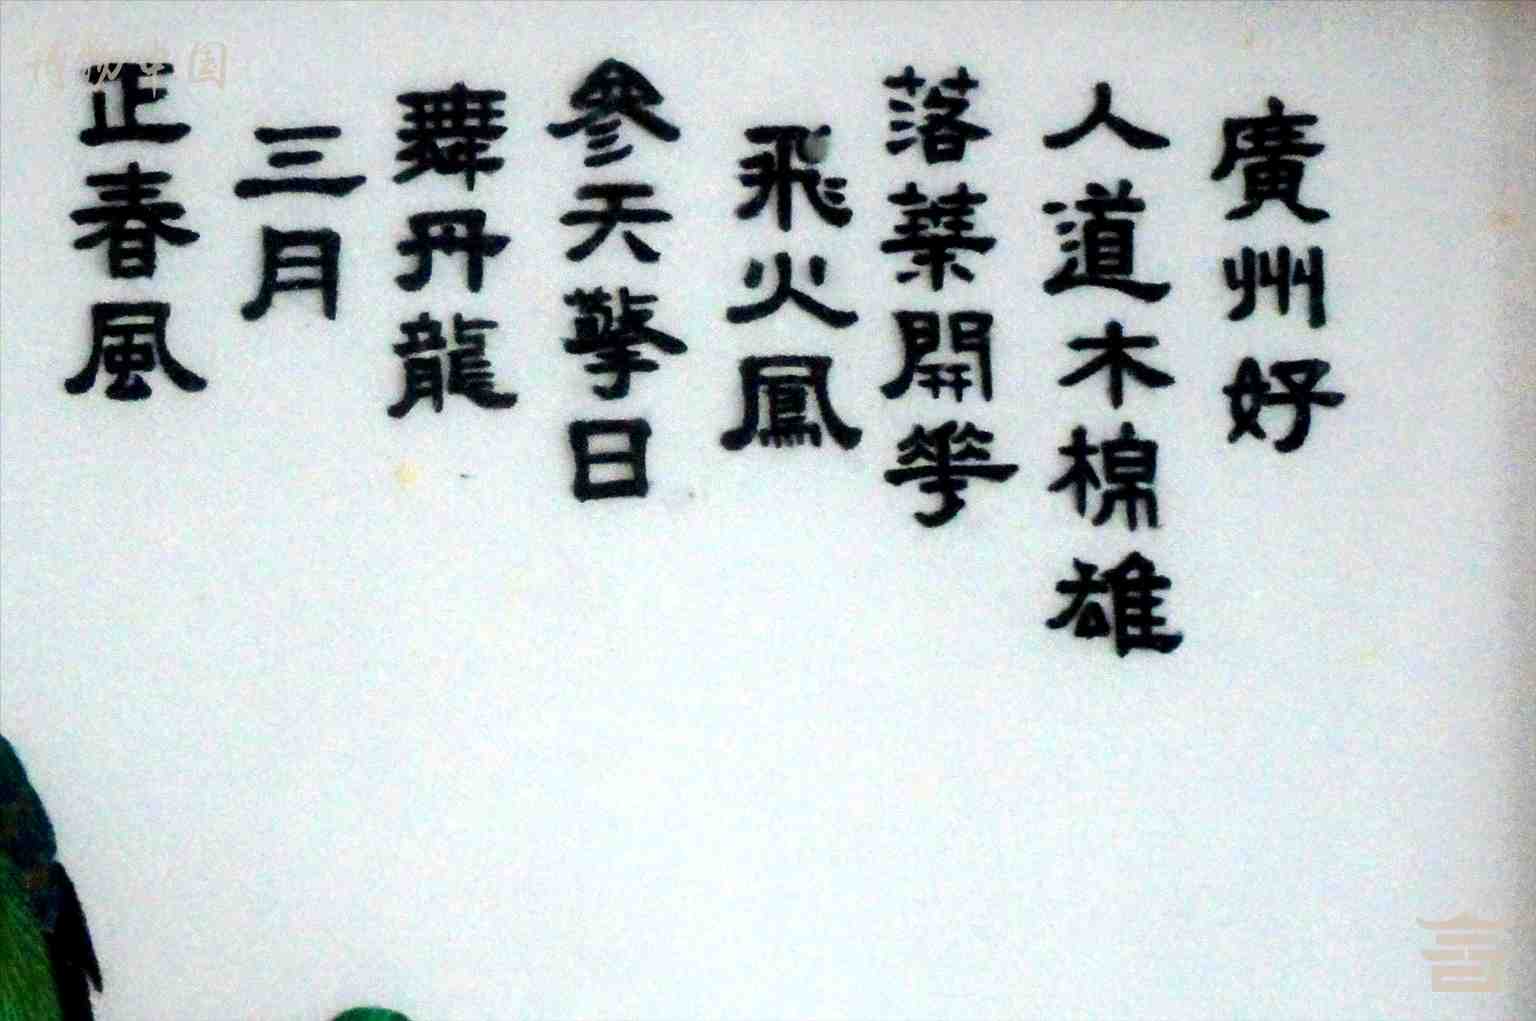 廣州好
人道木棉雄
落葉開花
飛火鳳
參天擎日
舞丹龍
三月
正春風